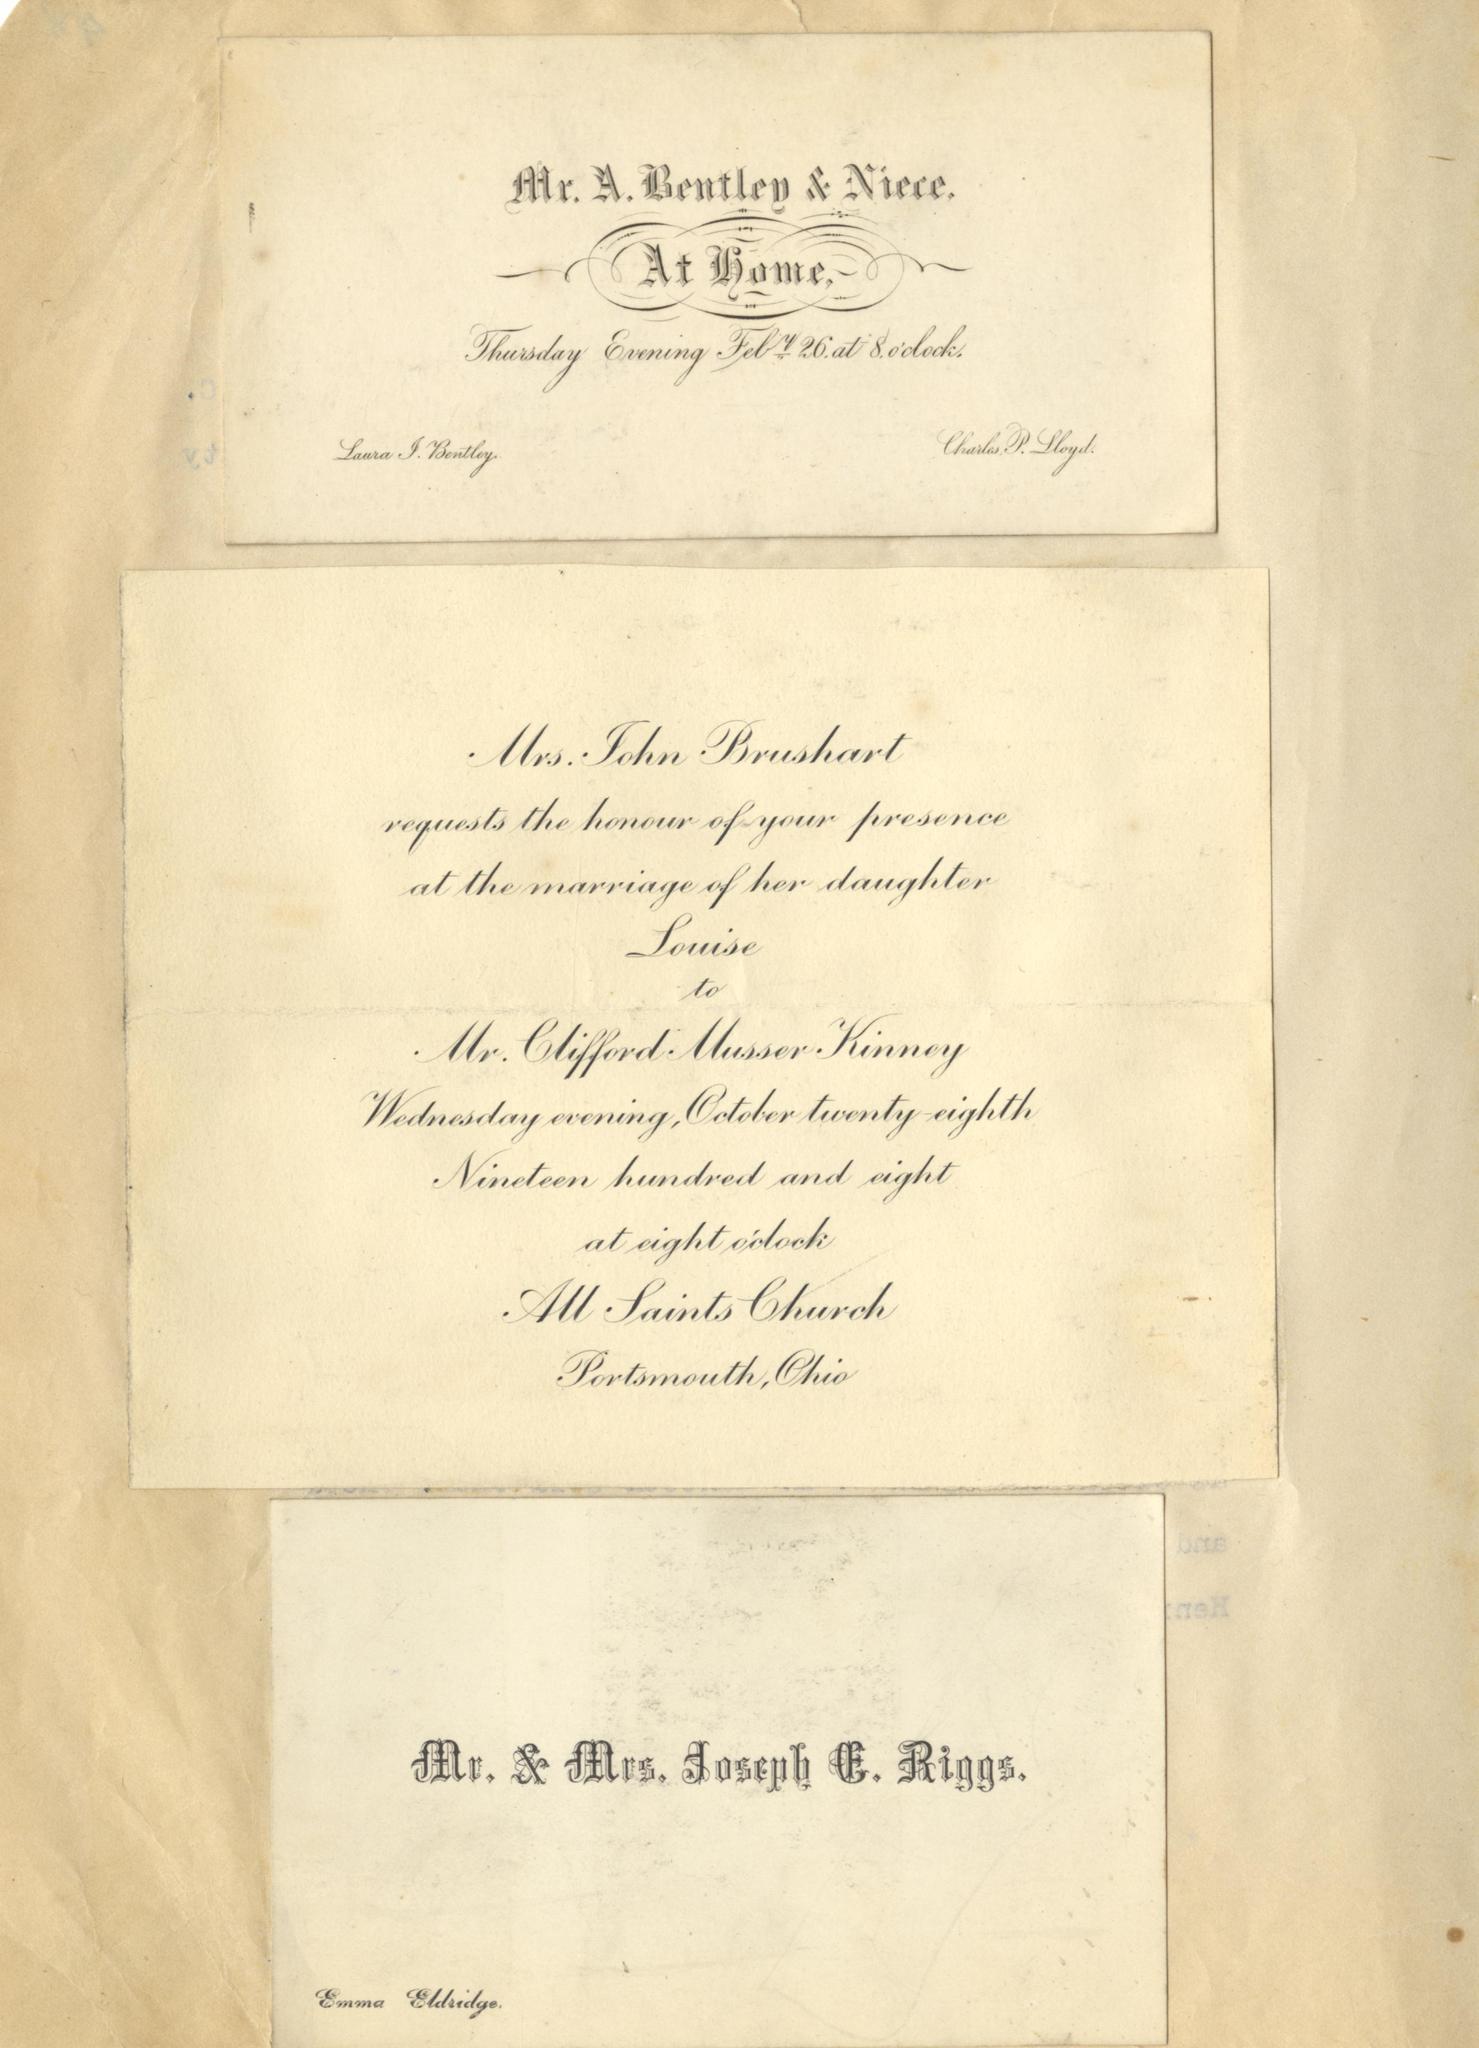 Mr. A. Bentley & Niece.
At Home,
Thursday Evening Feby 26. at 8 o'clock.
Laura I. Bentley.
Charles P. Lloyd.
Mrs. John Brushart
requests the honour of your presence
at the marriage of her daughter
Louise
to
Mr. Clifford Musser Kinney
Wednesday evening, October twenty-eighth
Nineteen hundred and eight
at eight o'clock
All Saints Church
Portsmouth, Ohio
and
Mr. & Mrs. Joseph E. Riggs.
Emma Eldridge.